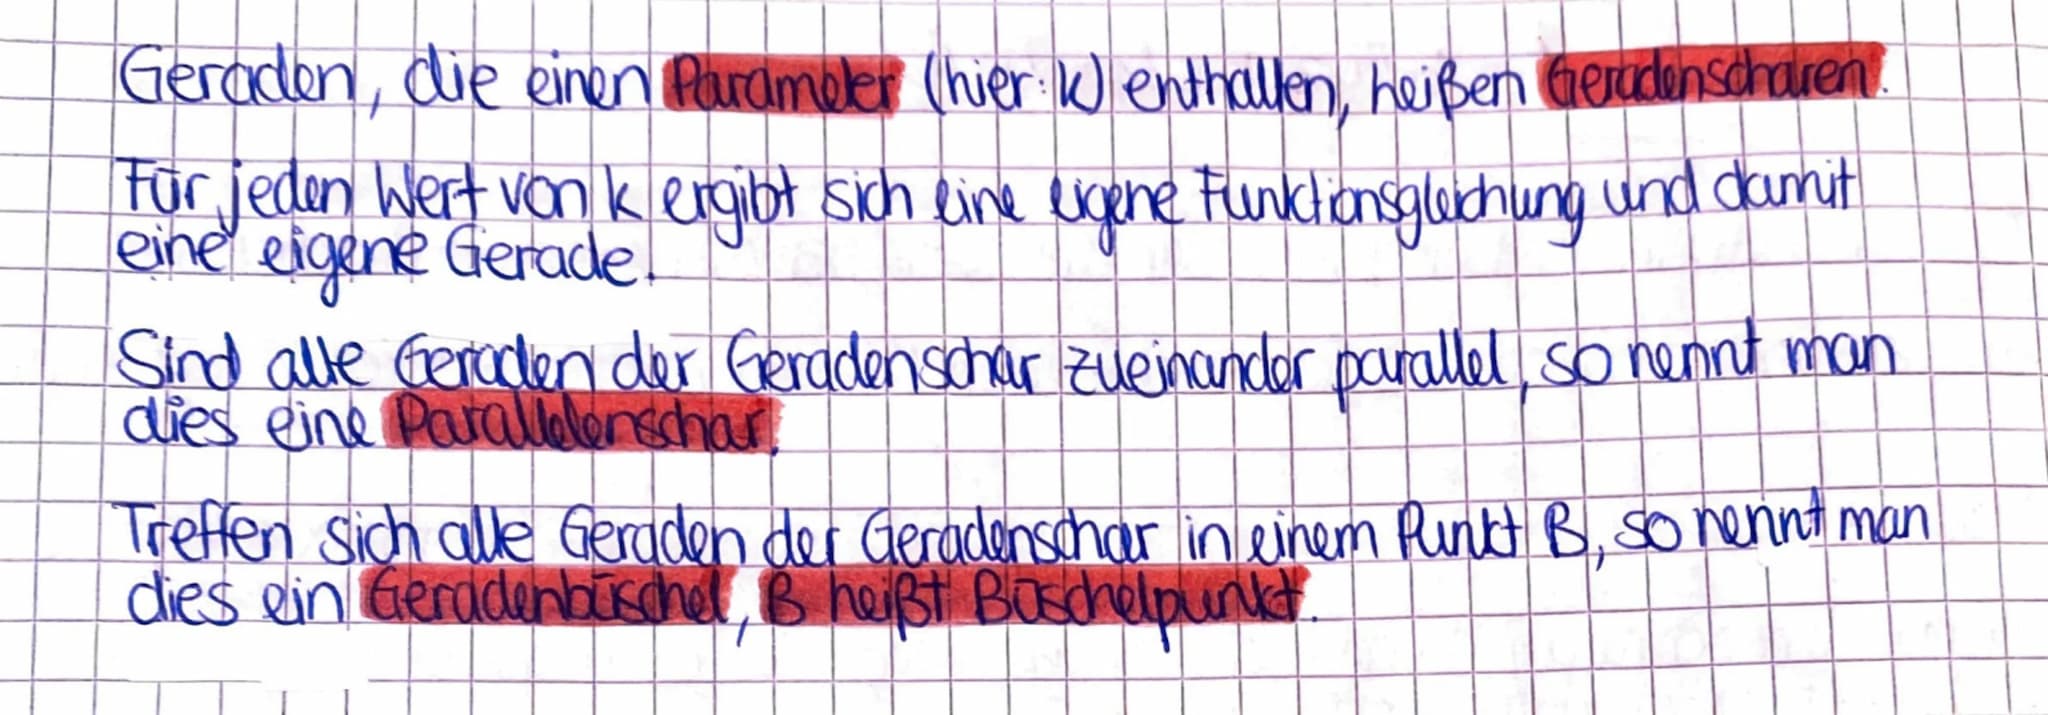 Geraden, die einen Parameter (hier: k) enthalten, heißen Geradenscharen.
Für jeden Wert von k ergibt sich eine eigene Funktionsgleichung und damit
eine eigene Gerade.
Sind alle Geraden der Geradenschar zueinander parallel, so nennt man
dies eine Parallelenschar.
Treffen sich alle Geraden der Geradenschar in einem Punkt B, so nennt man
dies ein Geradenbüschel, B heißt Büschelpunkt.